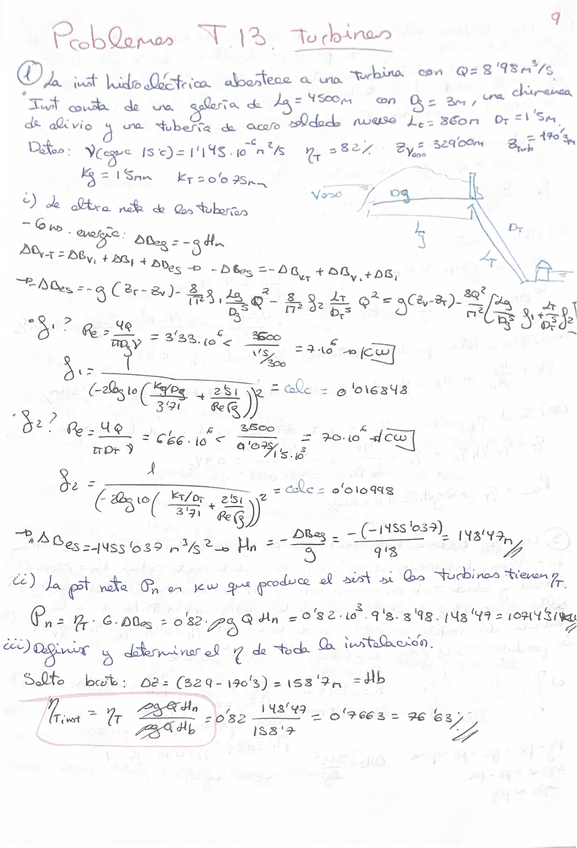 9
Problemas T.13. Turbinas
① La inst hidroeléctrica abastece a una turbina con Q=8'98 m³/s.
Inst consta de una galería de Lg=4500m con Dg=3m, una chimenea
de alivio y una tubería de acero soldado nuevo Lt=860m DT=1'5m.
Datos: ν(agua 15°C)=1'145·10⁻⁶ m²/s ηT=82% Zvaso=329'00m Zturb=170'3m
Kg=1'5mm KT=0'075mm
Vaso Dg Lg DT LT
i) La altura neta de las tuberías
- Ec. energía: ΔBes=-gHn
ΔBv-T=ΔBv₁+ΔB₁+ΔBes → -ΔBes=-ΔBvT+ΔBv₁+ΔB₁
→ -ΔBes=-g(ZT-Zv)-8/π² f₁ Lg/Dg⁵ Q²-8/π² f₂ LT/DT⁵ Q²=g(Zv-ZT)-8Q²/π² [Lg/Dg⁵ f₁+LT/DT⁵ f₂]
· f₁? Re=4Q/πDgν=3'33·10⁶ < 3500/1'5/300=7·10⁶ → CW
f₁=1/(-2log10(Kg/Dg/3'71+2'51/Re√f))²=calc=0'016848
· f₂? Re=4Q/πDTν=6'66·10⁶ < 3500/0'075/1'5·10³=70·10⁶ → CW
f₂=1/(-2log10(KT/DT/3'71+2'51/Re√f))²=calc=0'010998
→ ΔBes=-1455'037 m³/s² → Hn=-ΔBes/g=-(-1455'037)/9'8=148'47m
ii) La pot neta Pn en kw que produce el sist si las turbinas tienen ηT.
Pn=ηT·G·ΔBes=0'82·ρgQHn=0'82·10³·9'8·8'98·148'47=10714319kw
iii) Definir y determinar el η de toda la instalación.
Salto bruto: ΔZ=(329-170'3)=158'7m=Hb
ηTinst=ηT ρgQHn/ρgQHb=0'82 148'47/158'7=0'7663=76'63%